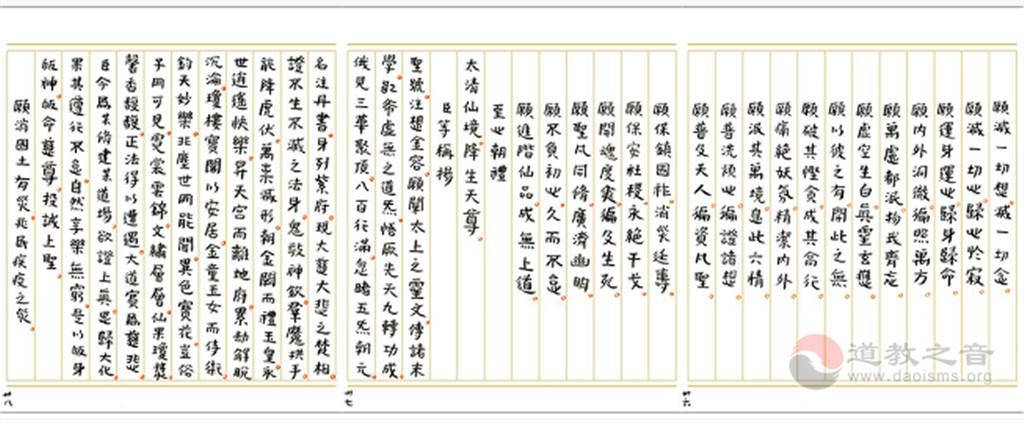 願滅一切想滅一切念
願滅一切心於寂
願運身運心歸身歸命
願內外洞徹徧照萬方
願萬慮都泯物我齊忘
願虛空生白真靈玄應
願以彼之有閉此之無
願破其慳貪成其高行
願痛絕妖氛精潔內外
願泯其萬境息此六情
願普洗煩心徧證諸想
願普及天人徧資凡聖
廿六
願保鎮國祚消災延壽
願保安社稷永絕干戈
願開魂度爽徧及生死
願聖凡同修廣濟幽明
願不負初心久而不怠
願進階仙品成無上道
至心朝禮
太清仙境降生天尊
臣等稱揚
聖號注想金容願闡太上之靈文傳諸末
學啟希虛無之道炁悟厥先天九轉功成
俄見三華聚頂八百行滿忽睹五炁朝元
廿七
名注丹書身列紫府現大慈大悲之梵相
證不生不滅之法身鬼敬神欽羣魔拱手
能降虎伏萬乘滅形朝金闕而禮玉皇永
世逍遙快樂昇天宮而離地府累劫解脫
沉淪瓊樓寶閣以安居金童玉女而侍衛
鈞天妙樂非塵世罔能聞異色寶花豈俗
子罔可見霓裳雲錦文繡層層仙果瓊漿
馨香馥馥正法得以遭遇大道實為慈悲
臣今為某修建某道場欲證上真歸大化
果其遵行不怠自然享樂無窮是以皈身
皈神皈命慈尊投誠上聖
願消國土有災兆民疾疫之災
廿八
道教之音
www.daoisms.org